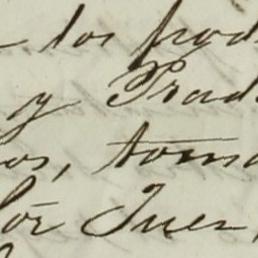 los prod
y Prad
os, toma
ór Juez